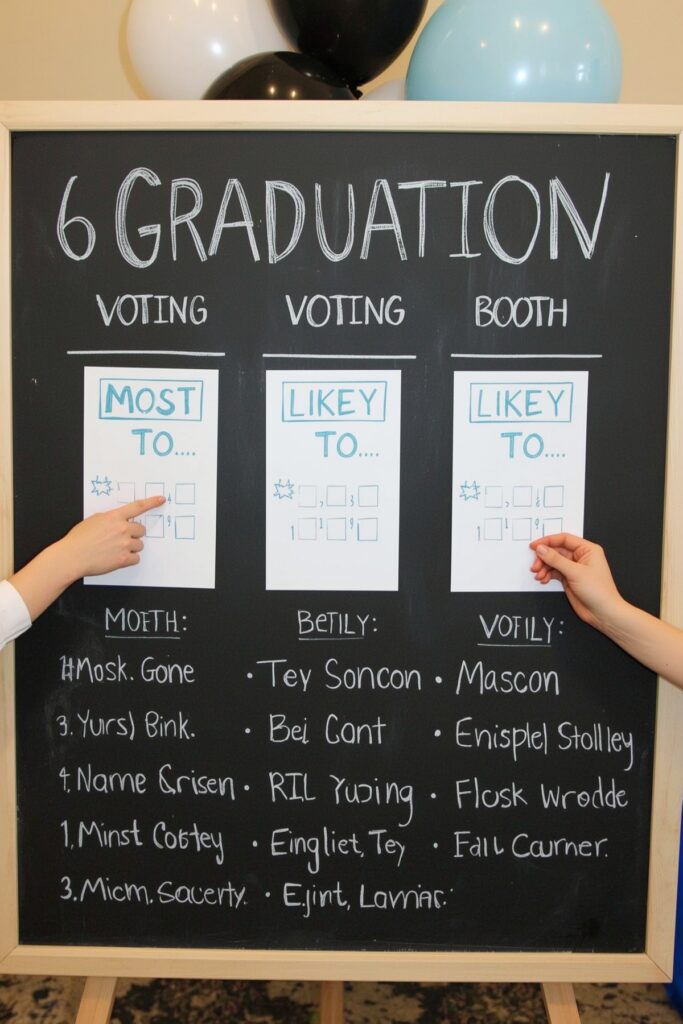 6 GRADUATION
VOTING VOTING BOOTH
MOST LIKEY LIKEY
TO.... TO.... TO....
MOETH: BETILY: VOTILY:
Mosk. Gone • Tey Soncon • Mascon
3. Yurs) Bink. • Bei Cant • Enisplel Stollley
Name • RIL Yuping • Flusk Wrodde
1, Minst • Eingliet, Tey • Fail Caurner.
3. Micm, Sacuerty. • Ejint,